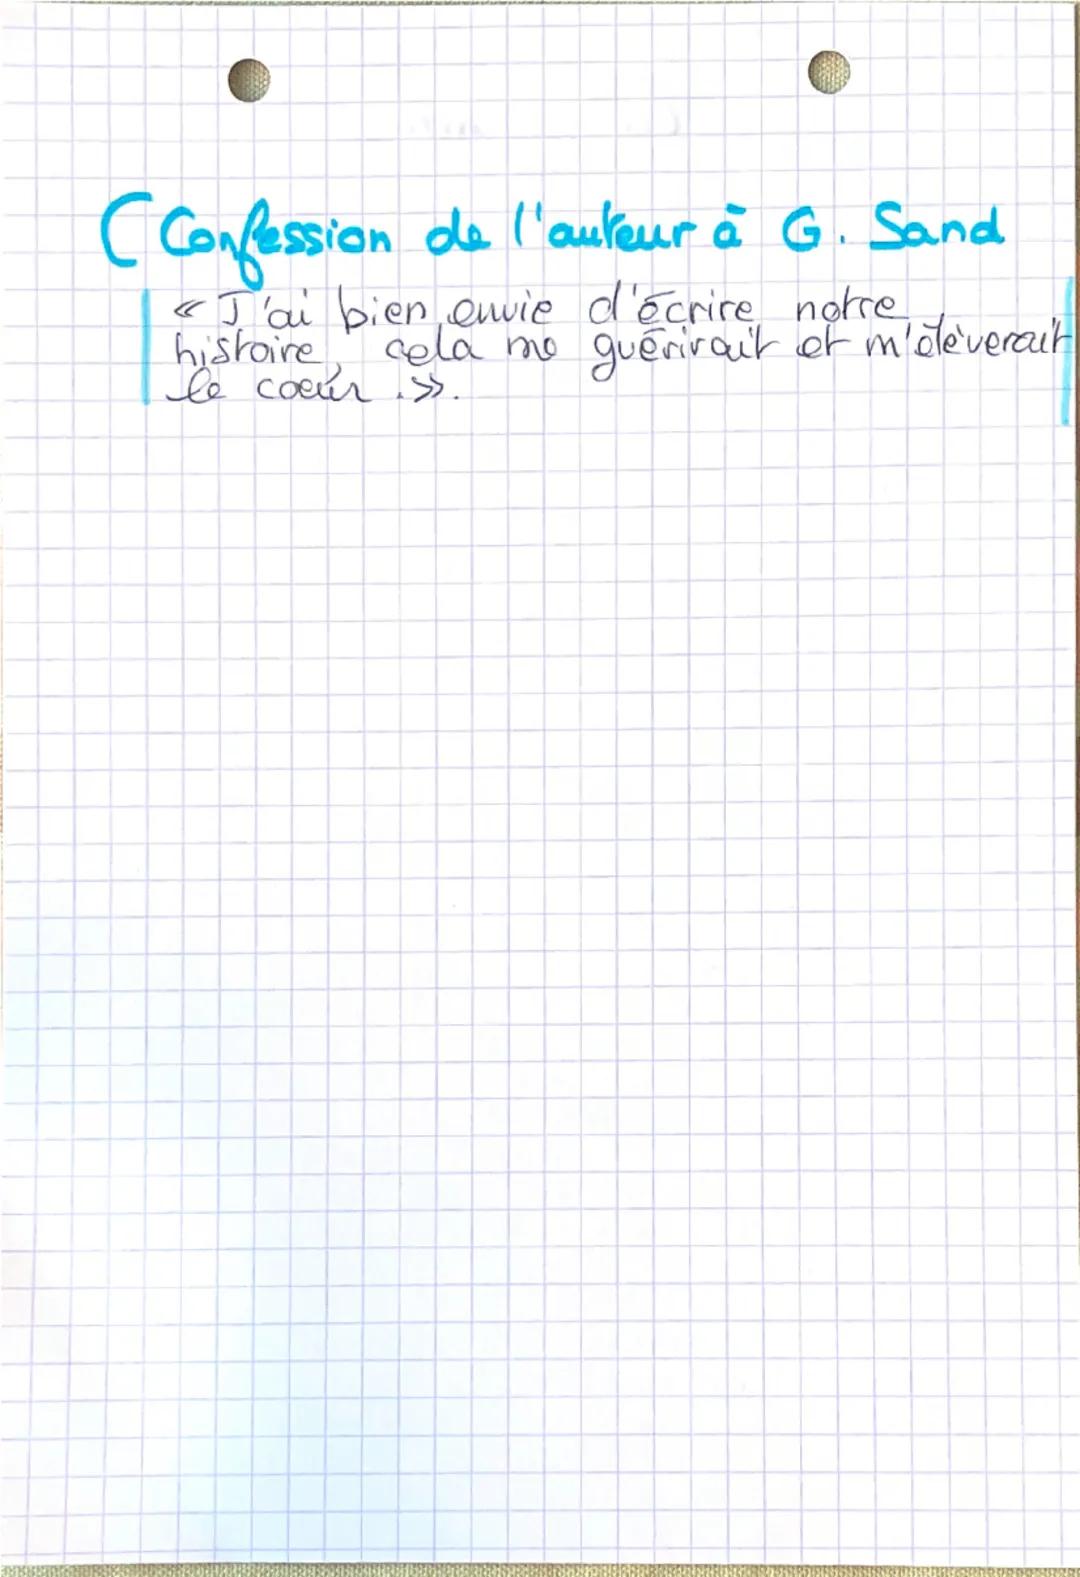 ( Confession de l'auteur à G. Sand
« J'ai bien envie d'écrire notre
histoire, cela me guérirait et m'élèverait
le coeur . ».